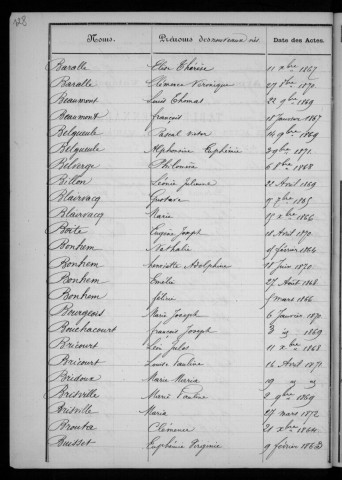 128
Noms. Prénoms des nouveaux nés. Date des Actes.
Baralle Elise Thérèse 11 xbre 1867
Baralle Clémence Véronique 27 1870
Beaumont Louis Thomas 22 9bre 1869
Beaumont françois 18 Janvier 1867
Belgueule Pascal 14 9bre 1869
Belgueule Alphonsine Euphémie 3 9bre 1871
Belverge Philomène 6 8bre 1868
Billon Léonie Julienne 22 Avril 1869
Blairvacq Gustave 9 7bre 1865
Blairvacq Marie 15 xbre 1866
Boite Eugène Joseph 18 Avril 1870
Bonhem Nathalie février 1864
Bonhem henriette Adolphine 18 Juin 1870
Bonhem Emélie 27 Août 1868
Bonhem mars 1866
Bourgeois Marie Joseph 6 Janvier 1870
Bouchacourt françois Joseph 3 id 1869
Bricourt Léon Jules 11 xbre 1868
Bricourt Louise Pauline 16 Avril 1871
Bridoux Marie Maria 19 id id
Brisville Marie Pauline 2 9bre 1869
Brisville Maria 27 mars 1872
Broutra Clémence 21 xbre 1864
Buisset Euphémie Virginie 9 février 1863